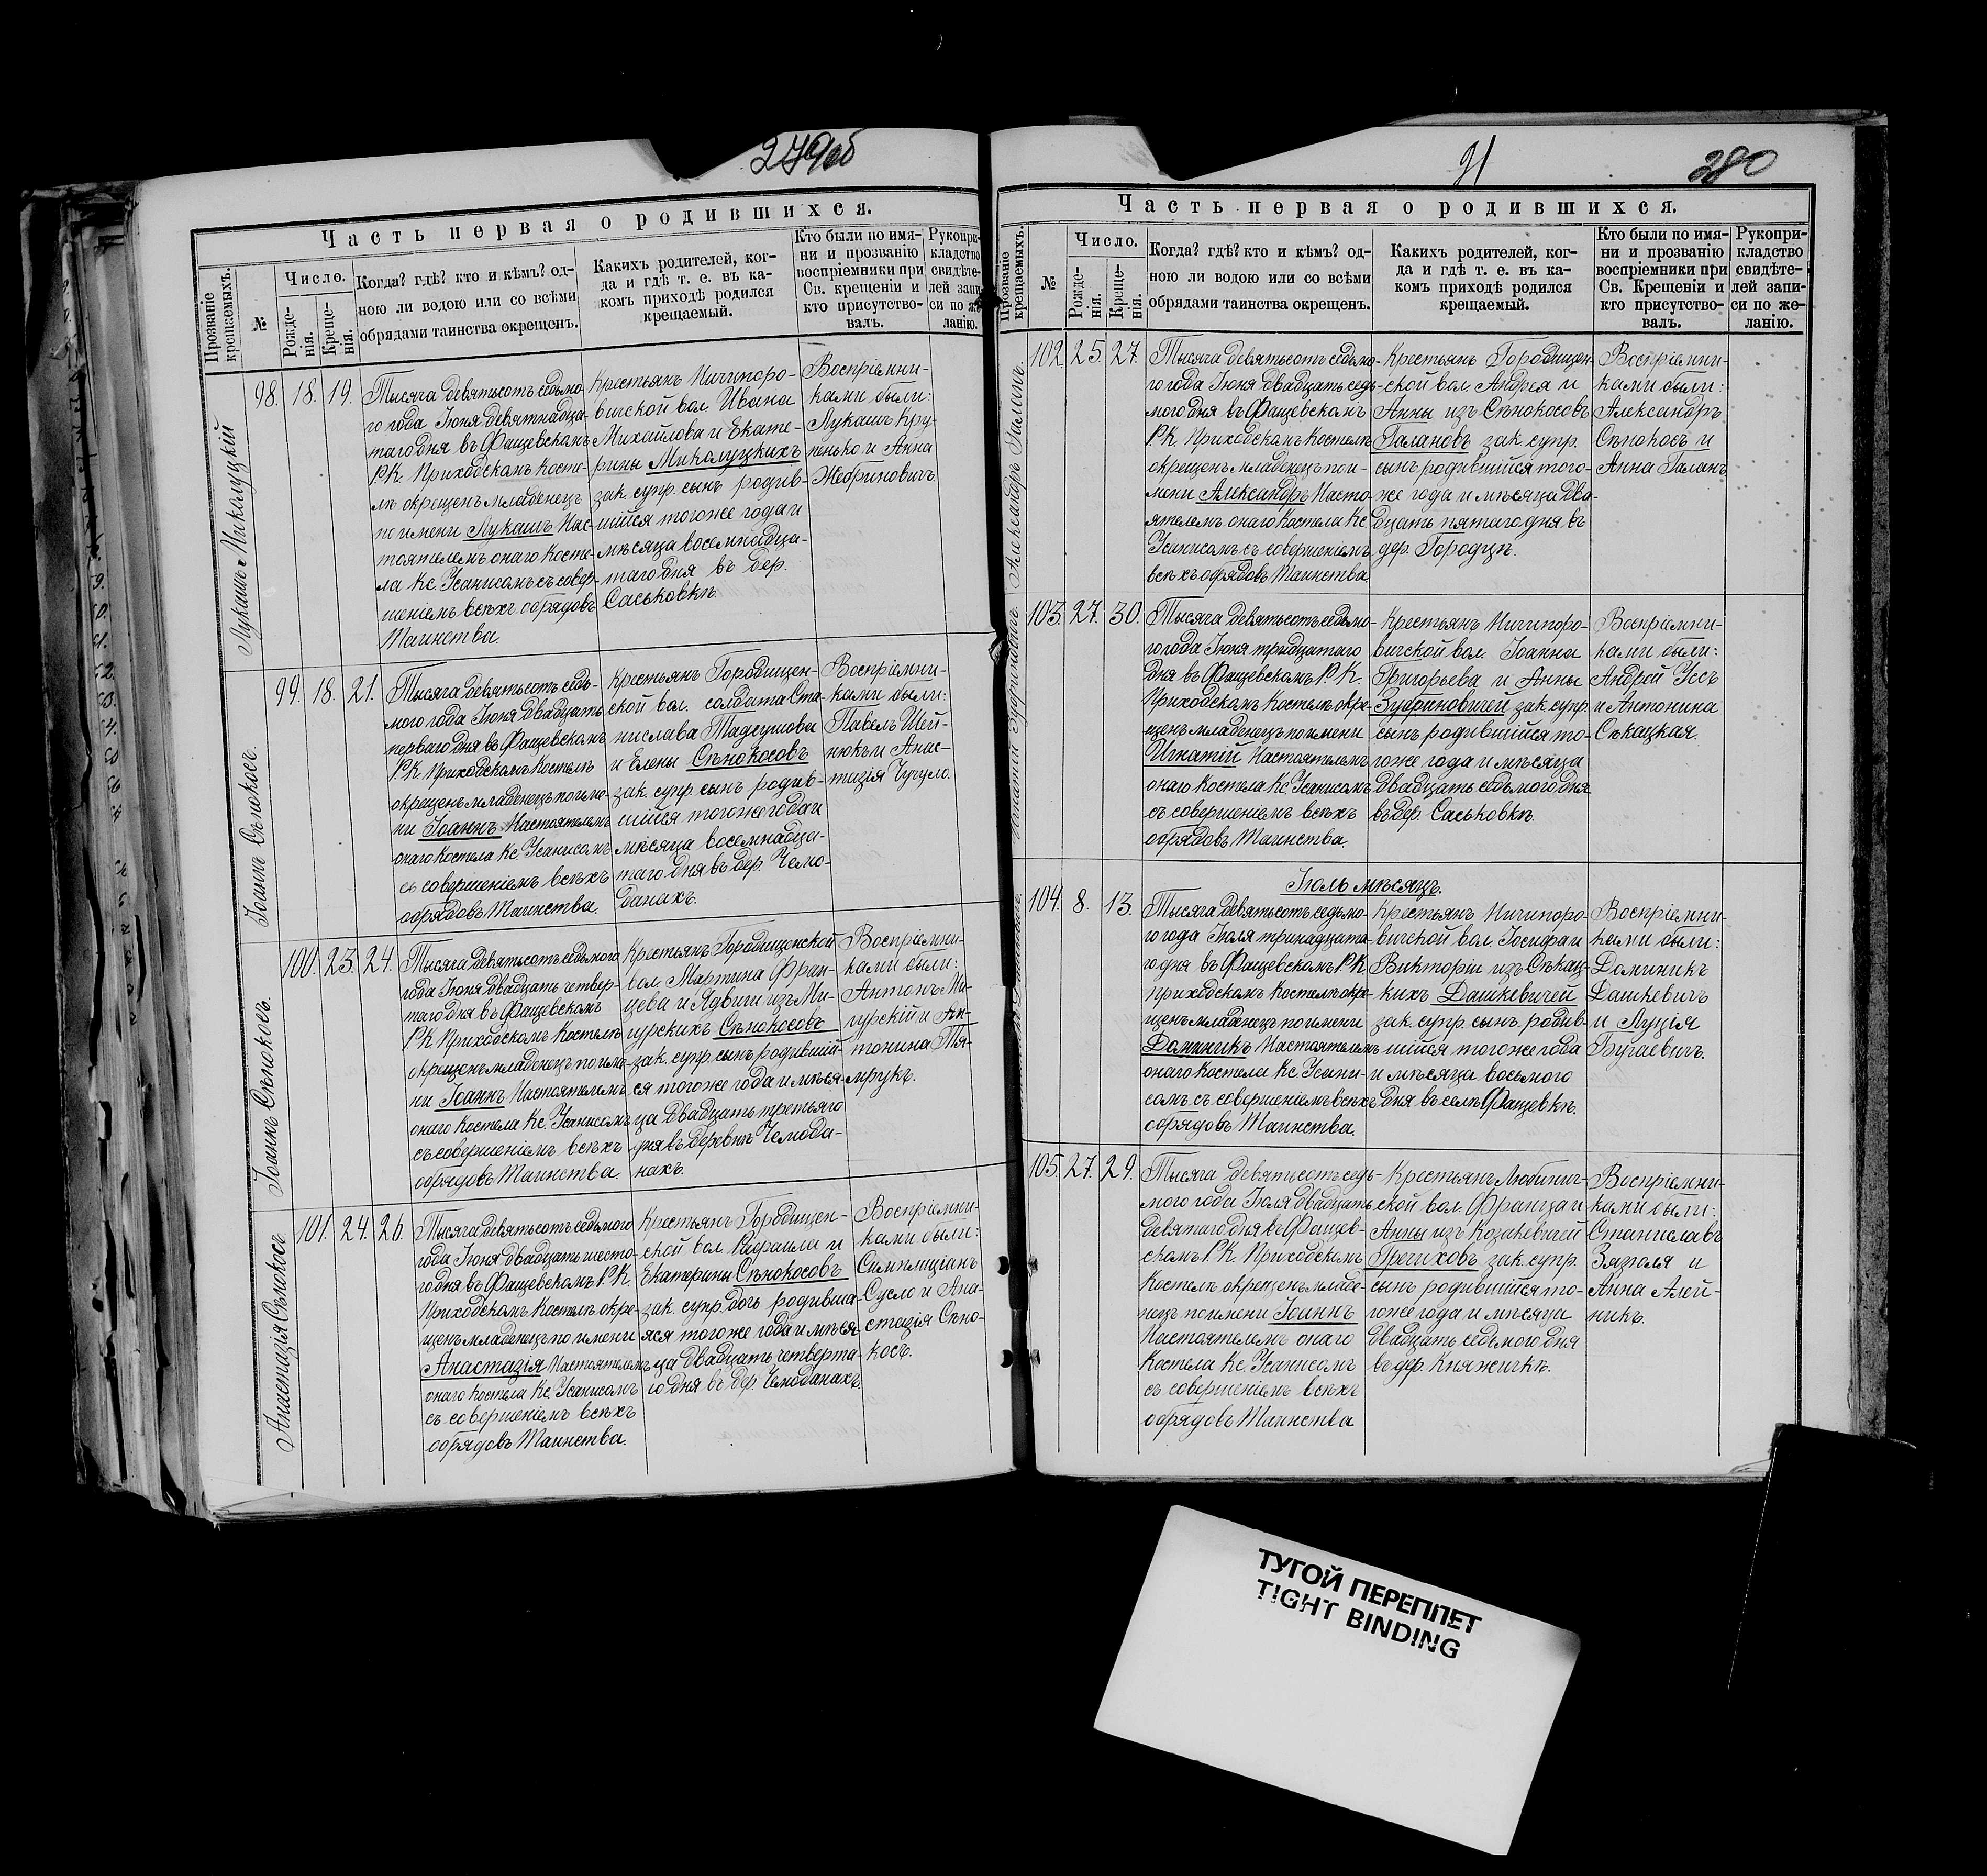 279об
Часть первая о родившихся.
Прозваніе крещаемыхъ.
№
Число.
Рожде-
нія.
Креще-
нія.
Когда? гдѣ? кто и кѣмъ? од-
ною ли водою или со всѣми
обрядами таинства окрещенъ.
Какихъ родителей, ког-
да и гдѣ т. е. въ ка-
комъ приходѣ родился
крещаемый.
Кто были по имя-
ни и прозванію
воспріемники при
Св. крещеніи и
кто присутство-
валъ.
Рукопри-
кладство
свидѣте-
лей запи-
си по же-
ланію.
Лукашъ Миколуцкій
98. 18. 19.
Тысяча девятьсотъ седьмо-
го года Іюня девятнадца-
таго дня въ Фащевскомъ
Р.К. Приходскомъ Косте-
лѣ окрещенъ младенецъ
по имени Лукашъ Нас-
тоятелемъ онаго Косте-
ла Кс. Усанисомъ съ совер-
шеніемъ всѣхъ обрядовъ
Таинства.
Крестьянъ Ничипоро-
вичской вол. Ивана
Михайлова и Екате-
рины Миколуцкихъ
зак. супр. сынъ родив-
шійся того же года и
мѣсяца восемнадца-
таго дня въ дер.
Саськовкѣ.
Воспріемни-
ками были:
Лукашъ Кру-
пенько и Анна
Жебриновичъ.
Іоаннъ Сѣнокосъ.
99. 18. 21.
Тысяча девятьсотъ седь-
мого года Іюня двадцать
перваго дня въ Фащевскомъ
Р.К. Приходскомъ Костелѣ
окрещенъ младенецъ по име-
ни Іоаннъ Настоятелемъ
онаго Костела Кс. Усанисомъ
съ совершеніемъ всѣхъ
обрядовъ Таинства.
Крестьянъ Городищен-
ской вол. солдата Ста-
нислава Тадеушова
и Елены Сѣнокосовъ
зак. супр. сынъ родив-
шійся того же года и
мѣсяца восемнадца-
таго дня въ дер. Чемо-
данахъ.
Воспріемни-
ками были:
Павелъ Шей-
нюкъ и Анас-
тазія Чугуло.
Іоаннъ Сѣнокосъ.
100. 23. 24.
Тысяча девятьсотъ седьмого
года Іюня двадцать четвер-
таго дня въ Фащевскомъ
Р.К. Приходскомъ Костелѣ
окрещенъ младенецъ по име-
ни Іоаннъ Настоятелемъ
онаго Костела Кс. Усанисомъ
съ совершеніемъ всѣхъ
обрядовъ Таинства.
Крестьянъ Городищенской
вол. Мартина Фран-
цева и Ядвиги изъ Ми-
гурскихъ Сѣнокосовъ
зак. супр. сынъ родившій-
ся того же года и мѣся-
ца двадцать третьяго
дня въ деревнѣ Чемода-
нахъ.
Воспріемни-
ками были:
Антонъ Ми-
гурскій и Ан-
тонина Тя-
мрукъ.
Анастазія Сѣнокосъ.
101. 24. 26.
Тысяча девятьсотъ седьмого
года Іюня двадцать шесто-
го дня въ Фащевскомъ Р.К.
Приходскомъ Костелѣ окре-
щенъ младенецъ по имени
Анастазія Настоятелемъ
онаго Костела Кс. Усанисомъ
съ совершеніемъ всѣхъ
обрядовъ Таинства.
Крестьянъ Городищен-
ской вол. Рафаила и
Екатерины Сѣнокосовъ
зак. супр. дочь родивша-
яся того же года и мѣся-
ца двадцать четверта-
го дня въ дер. Чемоданахъ.
Воспріемни-
ками были:
Симплиціанъ
Сусло и Ана-
стазія Сѣно-
косъ.
31
280
Часть первая о родившихся.
Прозваніе крещаемыхъ.
№
Число.
Рожде-
нія.
Креще-
нія.
Когда? гдѣ? кто и кѣмъ? од-
ною ли водою или со всѣми
обрядами таинства окрещенъ.
Какихъ родителей, ког-
да и гдѣ т. е. въ ка-
комъ приходѣ родился
крещаемый.
Кто были по имя-
ни и прозванію
воспріемники при
Св. Крещеніи и
кто присутство-
валъ.
Рукопри-
кладство
свидѣте-
лей запи-
си по же-
ланію.
Александръ Галанъ.
102. 25. 27.
Тысяча девятьсотъ седьмо-
го года Іюня двадцать седь-
мого дня въ Фащевскомъ
Р.К. Приходскомъ Костелѣ
окрещенъ младенецъ по и-
мени Александръ Насто-
ятелемъ онаго Костела Кс.
Усанисомъ съ совершеніемъ
всѣхъ обрядовъ Таинства.
Крестьянъ Городищен-
ской вол. Андрея и
Анны изъ Сѣнокосовъ
Галановъ зак. супр.
сынъ родившійся того-
же года и мѣсяца два-
дцать пятаго дня въ
дер. Городцѣ.
Воспріемни-
ками были:
Александръ
Сѣнокосъ и
Анна Галанъ.
103. 27. 30.
Тысяча девятьсотъ седьмо-
го года Іюня тридцатаго
дня въ Фащевскомъ Р.К.
Приходскомъ Костелѣ окре-
щенъ младенецъ по имени
Игнатій Настоятелемъ
онаго Костела Кс. Усанисомъ
съ совершеніемъ всѣхъ
обрядовъ Таинства.
Крестьянъ Ничипоро-
вичской вол. Іоанна
Григорьева и Анны
Зубриновичей зак. супр.
сынъ родившійся то-
гоже года и мѣсяца
двадцать седьмого дня
въ дер. Саськовкѣ.
Воспріемни-
ками были:
Андрей Уссъ
и Антонина
Сѣкацкая.
Іюль мѣсяцъ.
104. 8. 13.
Тысяча девятьсотъ седьмо-
го года Іюля тринадцата-
го дня въ Фащевскомъ Р.К.
Приходскомъ Костелѣ окре-
щенъ младенецъ по имени
Доминикъ Настоятелемъ
онаго Костела Кс. Усани-
сомъ съ совершеніемъ всѣхъ
обрядовъ Таинства.
Крестьянъ Ничипоро-
вичской вол. Іосифа и
Викторіи изъ Сѣкац-
кихъ Дашкевичей
зак. супр. сынъ родив-
шійся того же года
и мѣсяца восьмого
дня въ селѣ Фащевкѣ.
Воспріемни-
ками были:
Доминикъ
Дашкевичъ
и Луція
Бугаевичъ.
105. 27. 29.
Тысяча девятьсотъ седь-
мого года Іюля двадцать
девятаго дня въ Фащев-
скомъ Р.К. Приходскомъ
Костелѣ окрещенъ младе-
нецъ по имени Іоаннъ
Настоятелемъ онаго
Костела Кс. Усанисомъ
съ совершеніемъ всѣхъ
обрядовъ Таинства
Крестьянъ Любинич-
ской вол. Франца и
Анны изъ Козакевичей
Гречиховъ зак. супр.
сынъ родившійся то-
гоже года и мѣсяца
двадцать седьмого дня
въ дер. Княжичкѣ.
Воспріемни-
ками были:
Станиславъ
Зязюля и
Анна Алей-
никъ.
ТУГОЙ ПЕРЕПЛЕТ
TIGHT BINDING